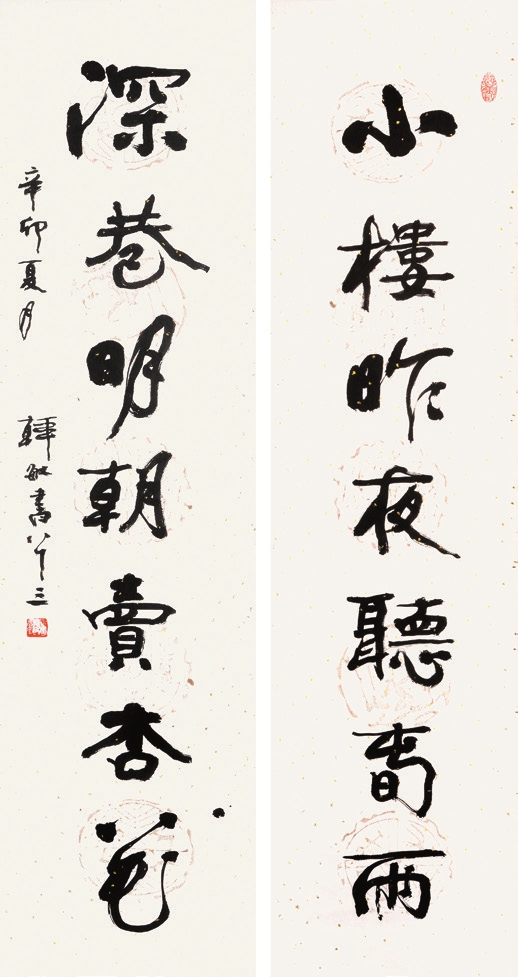 小樓昨夜聽春雨
深巷明朝賣杏花
辛卯夏月 韓敏書 八十三